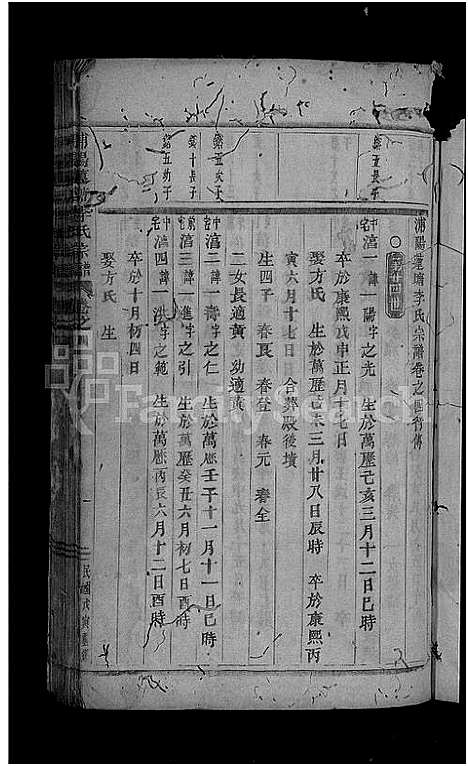 浦陽蓮塘李氏宗譜卷之四 行傳
第五長子
中宅 滔一 諱一陽字之先 生於萬歷己亥三月十二日巳時
卒於康熙戊申正月十七日
娶方氏 生於萬歷己未三月廿八日辰時 卒於康熙丙
寅六月十七日 合葬殿後墳
生四子 春良 春登 春元 春全
二女長適黃 幼適黃
第五次子
中宅 滔二 諱一濤字之仁 生於萬歷壬子十一月十一日巳時
第十長子
前宅 滔三 諱一進字之引 生於萬歷癸丑六月初七日酉時
第五幼子
中宅 滔四 諱一洪字之範 生於萬歷丙辰六月十二日酉時
卒於十月初四日
娶方氏 生
氏宗譜 卷之四
一
民國戊寅重修
FamilySearch